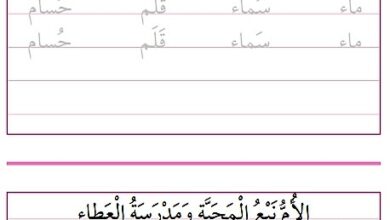 ماء سَماء قَلَم حُسام
ماء سَماء قَلَم حُسام
الأُمُّ نَبْعُ الْمَحَبَّةِ وَمَدْرَسَةُ الْعَطاءِ